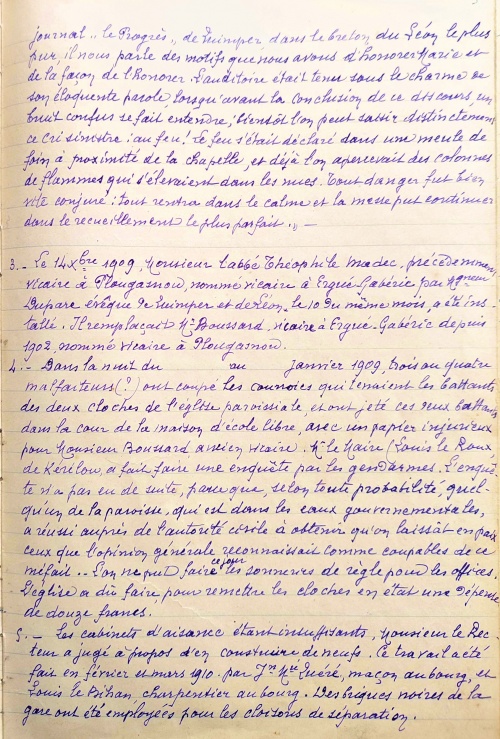 journal " le Progrès " de Quimper, dans le breton du Léon le plus
pur, il nous parle des motifs que nous avons d'honorer Marie et
de la façon de l'honorer. L'auditoire était tenu sous le charme de
son éloquente parole, lorsqu'avant la conclusion de ce discours, un
bruit confus se fait entendre, bientôt l'on peut saisir distinctement
ce cri sinistre : au feu ! Le feu s'était déclaré dans une meule de
foin à proximité de la chapelle, et déjà l'on apercevait des colonnes
de flammes qui s'élevaient dans les nues. Tout danger fut bien
vite conjuré : tout rentra dans le calme et la messe put continuer
dans le recueillement le plus parfait. " —
3. - Le 14 Xbre 1909, Monsieur l'abbé Théophile Madec, précédemment
vicaire à Plougasnou, nommé vicaire à Ergué-Gabéric par Mgneur
Duparc évêque de Quimper et de Léon, le 10 du même mois, a été ins-
tallé. Il remplaçait Mr Boussard, vicaire à Ergué-Gabéric depuis
1902, nommé vicaire à Plougasnou.
4. - Dans la nuit du au janvier 1909, trois ou quatre
malfaiteurs (?) ont coupé les courroies qui tenaient les battants
des deux cloches de l'église paroissiale, et ont jeté ces deux battants
dans la cour de la maison d'école libre, avec un papier injurieux
pour Monsieur Boussard ancien vicaire. Mr le Maire (Louis le Roux
de Kérilou, a fait faire une enquête par les gendarmes. L'enquê-
te n'a pas eu de suite, parce que, selon toute probabilité, quel-
qu'un de la paroisse, qui est dans les eaux gouvernementales,
a réussi auprès de l'autorité civile à obtenir qu'on laissât en paix
ceux que l'opinion générale reconnaissait comme coupables de ce
méfait .. L'on ne put faire ce jour les sonneries de règle pour les offices.
L'église a dû faire, pour remettre les cloches en état une dépense
de douze francs.
5. - Les cabinets d'aisance étant insuffisants, Monsieur le Rec-
teur a jugé à propos d'en construire de neufs. Ce travail a été
fait en février et mars 1910. par Jn Mie Guéré, maçon au bourg, et
Louis le Bihan, charpentier au bourg. Des briques noires de la
gare ont été employées pour les cloisons de séparation.